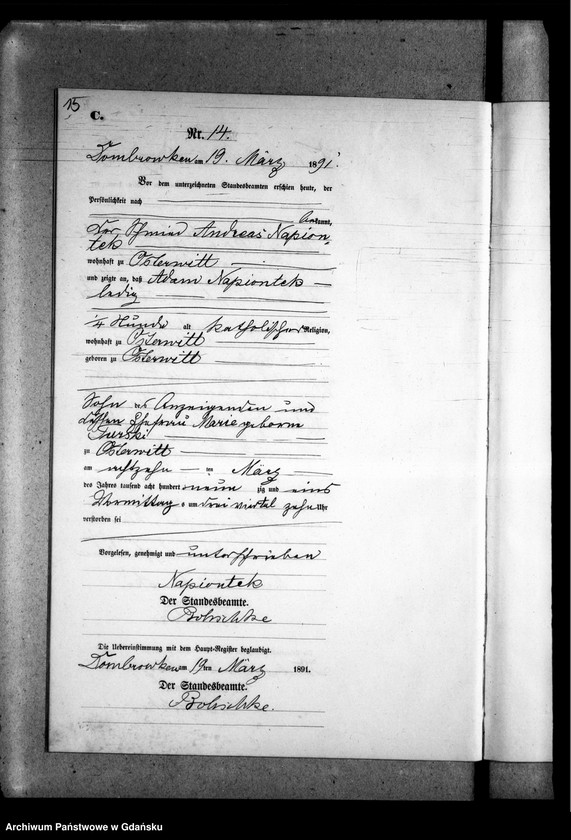 15
C.
Nr. 14.
Dombrowken am 19. März 1891.
Vor dem unterzeichneten Standesbeamten erschien heute, der
Persönlichkeit nach
kannt,
Der Schmied Andreas Napion-
tek
wohnhaft zu Osterwitt
und zeigte an, daß Adam Napiontek
ledig
1/4 Stunde alt katholischer Religion,
wohnhaft zu Osterwitt
geboren zu Osterwitt
Sohn des Anzeigenden und
dessen Ehefrau Marie geborne
zu Osterwitt
am ten März
des Jahres tausend acht hundert neun zig und eins
Vormittags um drei viertel zehn Uhr
verstorben sei
Vorgelesen, genehmigt und unterschrieben
Napiontek
Der Standesbeamte.
Die Uebereinstimmung mit dem Haupt-Register beglaubigt.
Dombrowken am 19ten März 1891.
Der Standesbeamte.
Archiwum Państwowe w Gdańsku